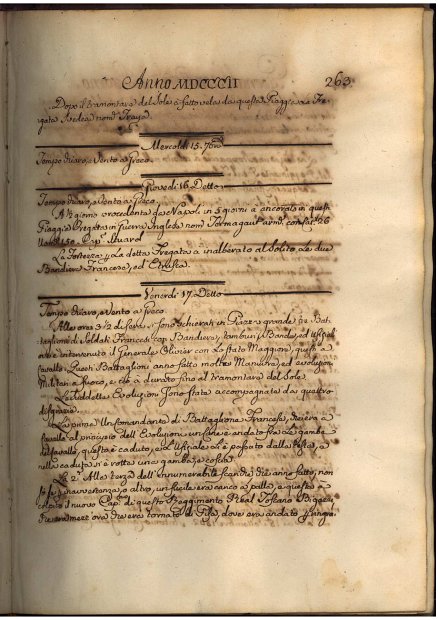 Anno MDCCCII 263
Dopo il tramontare del Sole à fatto vela da questa Piaggia la Fre-
gata Svedea nom: Fraya.
Mercoldì 15. 7bre
Tempo chiaro, e Vento a Greco.
Giovedì 16. Detto
Tempo chiaro, e Vento a Greco.
A ½ giorno procedente da Napoli in 5 giorni è ancorata in questa
Piaggia Fregata in guerra Inglese nom:
150. Cap:
La Fortezza, la detta Fregata à inalberato al Solito le due
Bandiere Francese, ed Etrusca.
Venerdì 17. Detto
Tempo chiaro, e Vento a Greco
Alle ore 3½ di sera Sono schierati in Piazza grande tre Bat-
taglioni di Soldati Francesi cop: Bandiere, tamburi, Banda, ed Ufiziali
ove è intervenuto il Generale Olivier con lo stato Maggiore, quale a
Cavallo. Questi Battaglioni anno fatto molte Manuvre, ed evoluzioni
Militari a fuoco, e ciò à durato fino al tramontare del Sole.
Le suddette Evoluzioni Sono state accompagnate da quattro
disgrazie.
La prima Un Comandante di Battaglione Francese, che era a
Cavallo al principio dell' Evoluzioni un cane è andato fra le gambe
al Cavallo, questa è caduto, e l'Ufiziale Li è passato dalla testa, e
nella caduta si è rotta una gamba, e coscia.
La 2ª. Alla terza dell' innumerabile scariche che anno fatto, non
si sà se inavvertenza, o altro, un fucile era carico a palla, e questa à
colpito il nuovo Cap: di questo Reggimento Real Toscano
ora che era tornato di Pisa, dove era andato